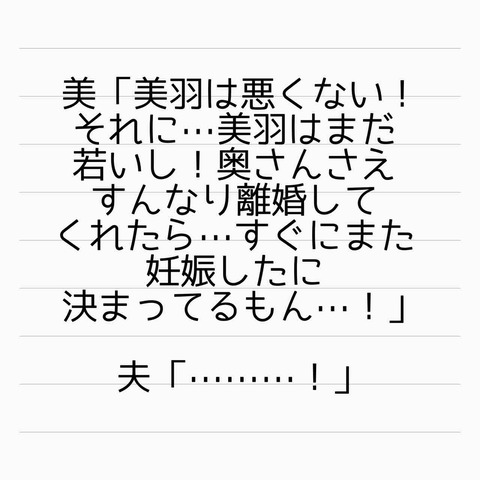 美「美羽は悪くない！
それに…美羽はまだ
若いし！奥さんさえ
すんなり離婚して
くれたら…すぐにまた
妊娠したに
決まってるもん…！」
夫「………！」